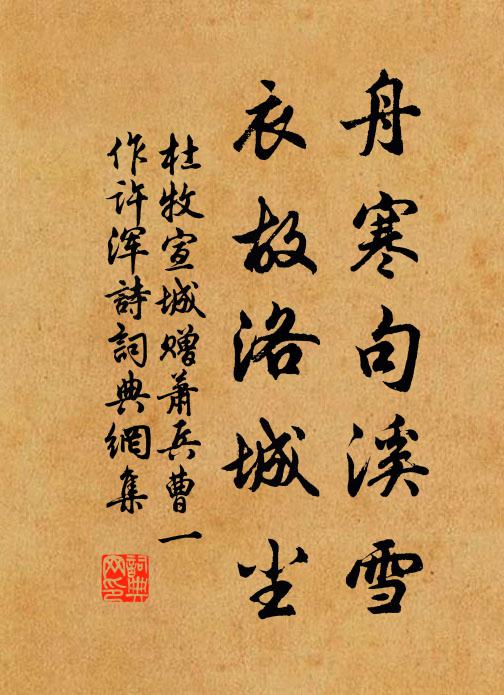 舟寒句溪雪
衣故洛城尘
杜牧宣城赠萧兵曹一
作许浑詩詞典網集
詞典网印